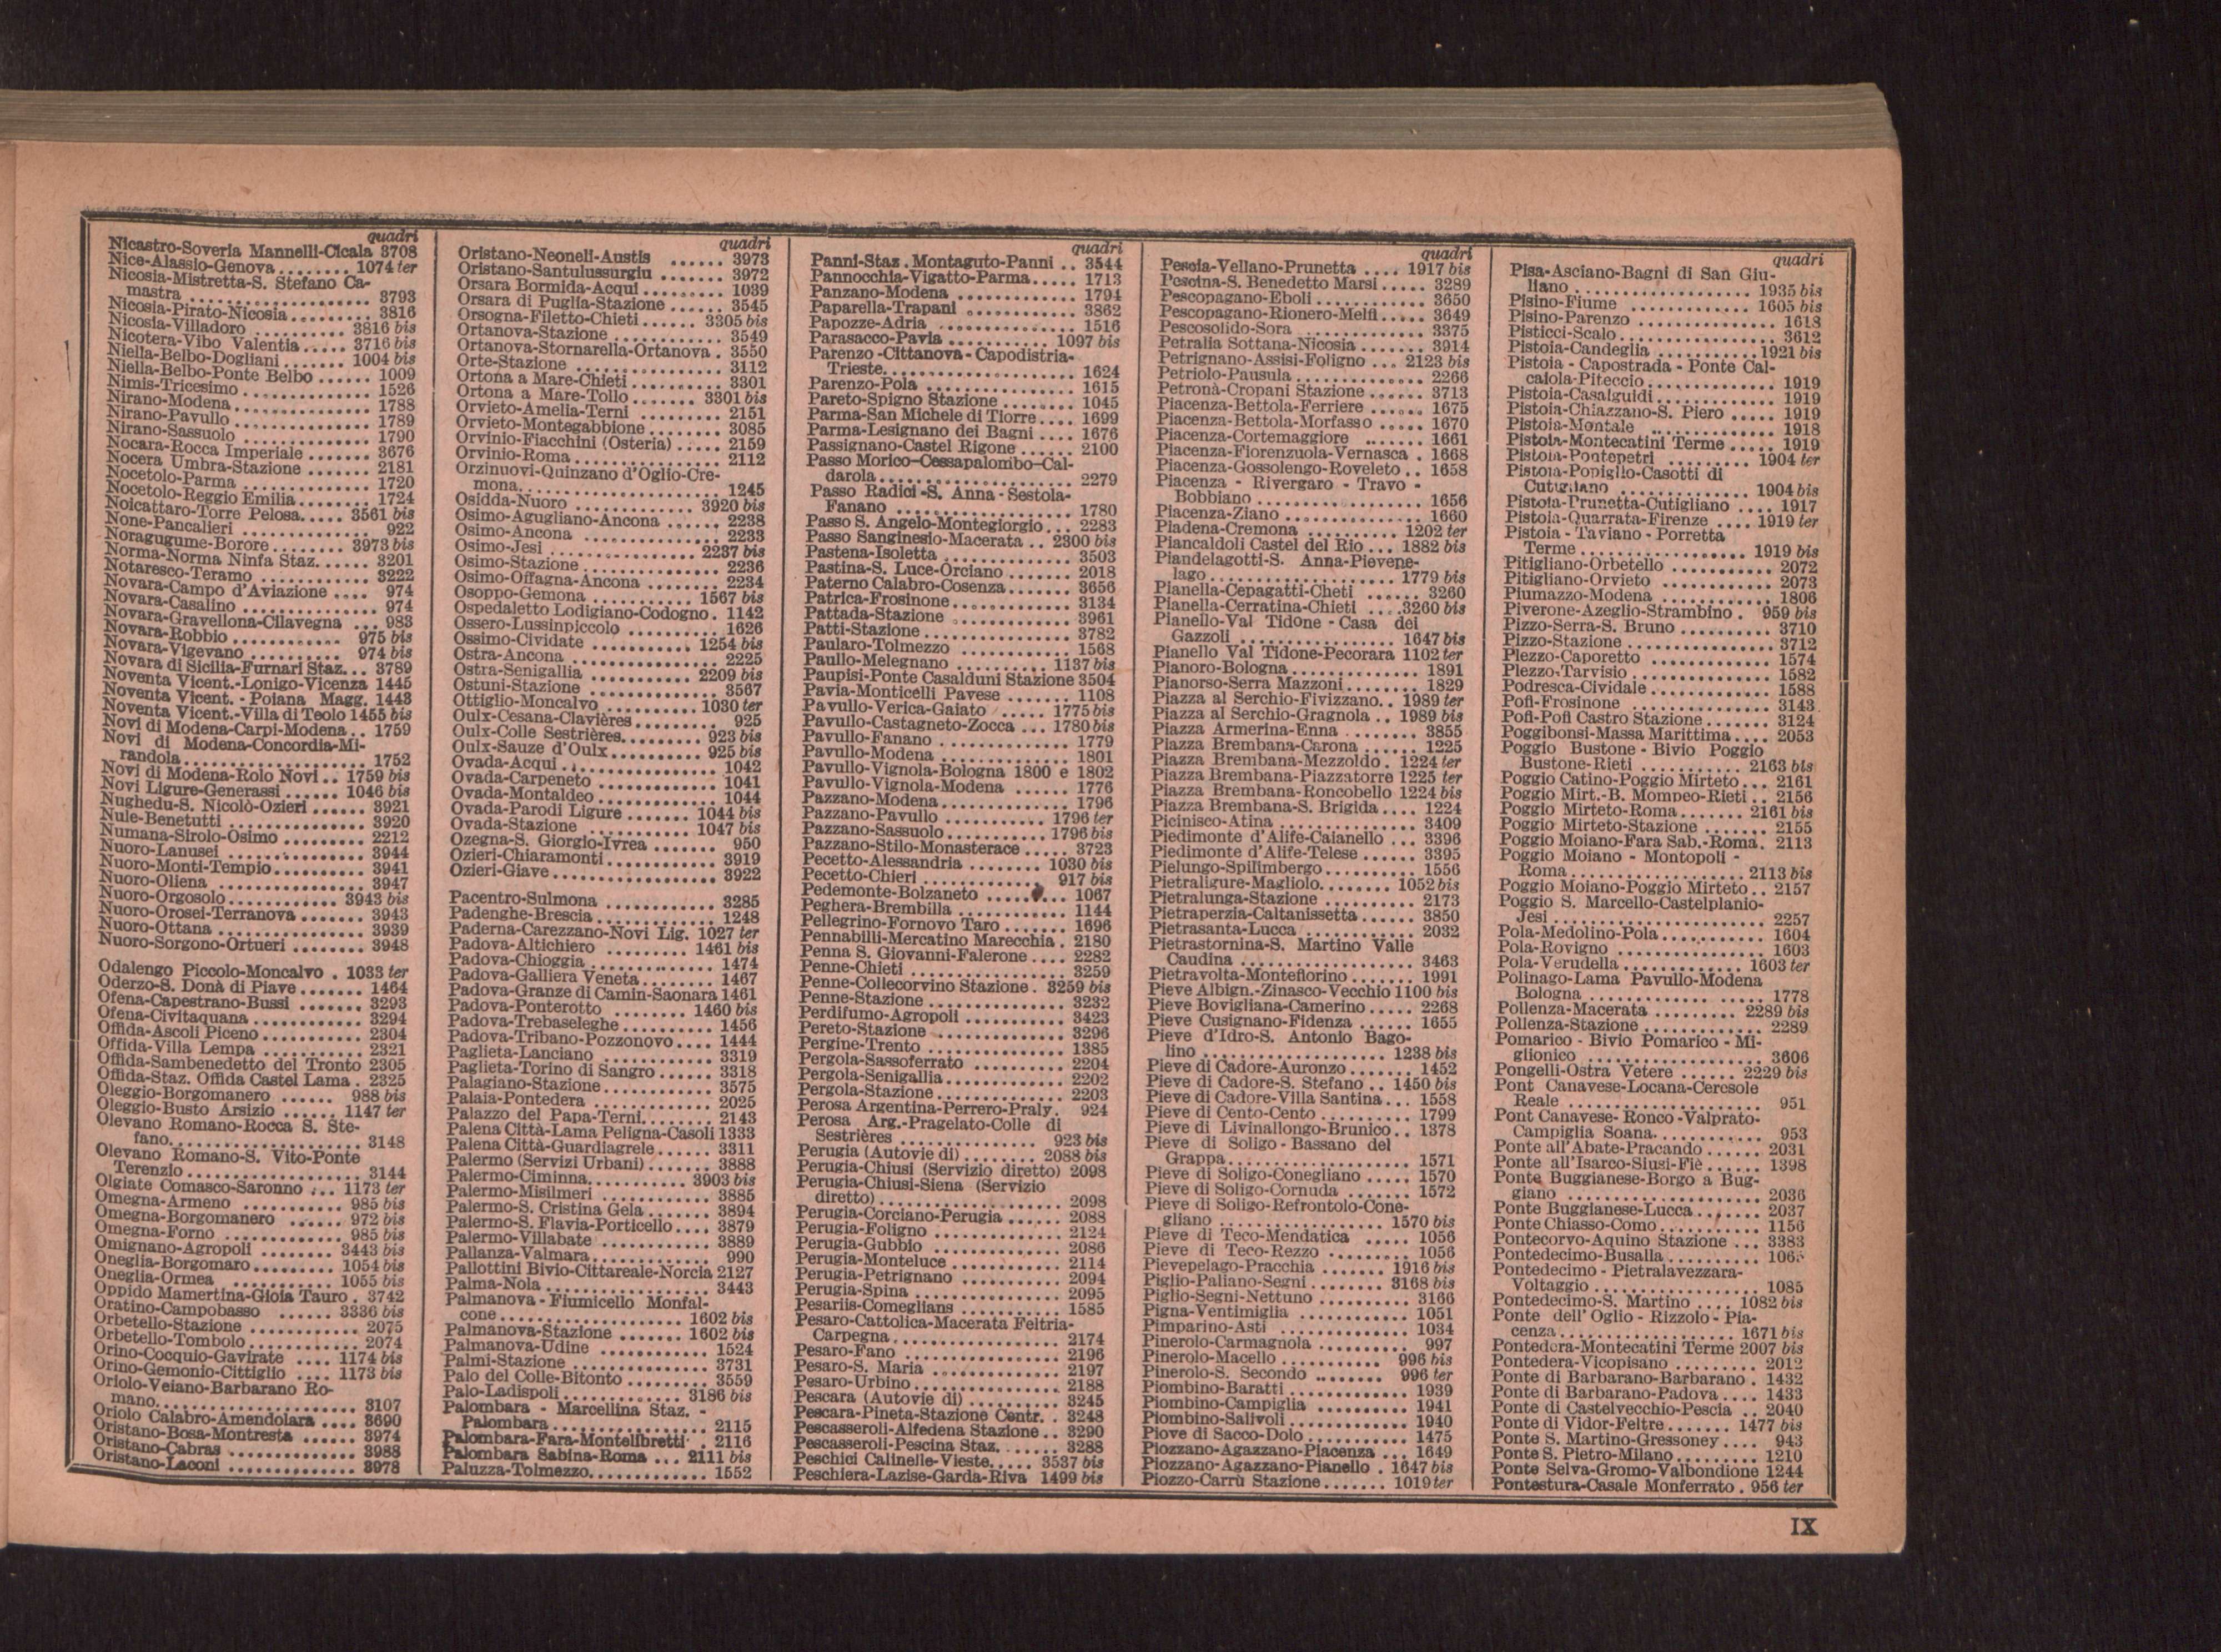 quadri
Nicastro-Soveria Mannelli-Cicala 3708
Nice-Alassio-Genova ........ 1074 ter
Nicosia-Mistretta-S. Stefano Ca-
mastra ................... 3793
Nicosia-Pirato-Nicosia ......... 3816
Nicosia-Villadoro .......... 3816 bis
Nicotera-Vibo Valentia ..... 3716 bis
Niella-Belbo-Dogliani ....... 1004 bis
Niella-Belbo-Ponte Belbo ...... 1009
Nimis-Tricesimo ............. 1526
Nirano-Modena .............. 1788
Nirano-Pavullo .............. 1789
Nirano-Sassuolo ............. 1790
Nocara-Rocca Imperiale ....... 3676
Nocera Umbra-Stazione ....... 2181
Nocetolo-Parma ............. 1720
Nocetolo-Reggio Emilia ........ 1724
Noicattaro-Torre Pelosa ..... 3561 bis
None-Pancalieri ............. 922
Noragugume-Borore ........ 3973 bis
Norma-Norma Ninfa Staz. ..... 3201
Notaresco-Teramo ........... 3222
Novara-Campo d'Aviazione .... 974
Novara-Casalino ............. 974
Novara-Gravellona-Cilavegna ... 983
Novara-Robbio ........... 975 bis
Novara-Vigevano .......... 974 bis
Novara di Sicilia-Furnari Staz... 3789
Noventa Vicent.-Lonigo-Vicenza 1445
Noventa Vicent. - Poiana Magg. 1443
Noventa Vicent.-Villa di Teolo 1455 bis
Novi di Modena-Carpi-Modena .. 1759
Novi di Modena-Concordia-Mi-
randola ................... 1752
Novi di Modena-Rolo Novi .. 1759 bis
Novi Ligure-Generassi ...... 1046 bis
Nughedu-S. Nicolò-Ozieri ...... 3921
Nule-Benetutti .............. 3920
Numana-Sirolo-Osimo ......... 2212
Nuoro-Lanusei .............. 3944
Nuoro-Monti-Tempio .......... 3941
Nuoro-Oliena ............... 3947
Nuoro-Orgosolo ............ 3943 bis
Nuoro-Orosei-Terranova ....... 3943
Nuoro-Ottana ............... 3939
Nuoro-Sorgono-Ortueri ........ 3948
Odalengo Piccolo-Moncalvo . 1033 ter
Oderzo-S. Donà di Piave ....... 1464
Ofena-Capestrano-Bussi ....... 3293
Ofena-Civitaquana ............ 3294
Offida-Ascoli Piceno ........... 2304
Offida-Villa Lempa ........... 2321
Offida-Sambenedetto del Tronto 2305
Offida-Staz. Offida Castel Lama . 2325
Oleggio-Borgomanero ...... 988 bis
Oleggio-Busto Arsizio ...... 1147 ter
Olevano Romano-Rocca S. Ste-
fano ..................... 3148
Olevano Romano-S. Vito-Ponte
Terenzio ................... 3144
Olgiate Comasco-Saronno ... 1173 ter
Omegna-Armeno ........... 985 bis
Omegna-Borgomanero ...... 972 bis
Omegna-Forno ............. 985 bis
Omignano-Agropoli ........ 3443 bis
Oneglia-Borgomaro ......... 1054 bis
Oneglia-Ormea ........... 1055 bis
Oppido Mamertina-Gioia Tauro . 3742
Oratino-Campobasso ...... 3336 bis
Orbetello-Stazione ............ 2075
Orbetello-Tombolo ............ 2074
Orino-Cocquio-Gavirate .... 1174 bis
Orino-Gemonio-Cittiglio .... 1173 bis
Oriolo-Veiano-Barbarano Ro-
mano ..................... 3107
Oriolo Calabro-Amendolara .... 3690
Oristano-Bosa-Montresta ...... 3974
Oristano-Cabras ............. 3988
Oristano-Laconi .............. 3978
quadri
Oristano-Neoneli-Austis ...... 3973
Oristano-Santulussurgiu ....... 3972
Orsara Bormida-Acqui ......... 1039
Orsara di Puglia-Stazione ...... 3545
Orsogna-Filetto-Chieti ...... 3305 bis
Ortanova-Stazione ............ 3549
Ortanova-Stornarella-Ortanova . 3550
Orte-Stazione ................ 3112
Ortona a Mare-Chieti ......... 3301
Ortona a Mare-Tollo ....... 3301 bis
Orvieto-Amelia-Terni ......... 2151
Orvieto-Montegabbione ........ 3085
Orvinio-Fiacchini (Osteria) ..... 2159
Orvinio-Roma ............... 2112
Orzinuovi-Quinzano d'Oglio-Cre-
mona ..................... 1245
Osidda-Nuoro ............ 3920 bis
Osimo-Agugliano-Ancona ...... 2238
Osimo-Ancona .............. 2233
Osimo-Jesi ................ 2237 bis
Osimo-Stazione .............. 2236
Osimo-Offagna-Ancona ........ 2234
Osoppo-Gemona ........... 1567 bis
Ospedaletto Lodigiano-Codogno . 1142
Ossero-Lussinpiccolo .......... 1626
Ossimo-Cividate ........... 1254 bis
Ostra-Ancona ............... 2225
Ostra-Senigallia ............ 2209 bis
Ostuni-Stazione .............. 3567
Ottiglio-Moncalvo .......... 1030 ter
Oulx-Cesana-Clavières ......... 925
Oulx-Colle Sestrières ......... 923 bis
Oulx-Sauze d'Oulx .......... 925 bis
Ovada-Acqui ................ 1042
Ovada-Carpeneto ............ 1041
Ovada-Montaldeo ............ 1044
Ovada-Parodi Ligure ....... 1044 bis
Ovada-Stazione ........... 1047 bis
Ozegna-S. Giorgio-Ivrea ....... 950
Ozieri-Chiaramonti ............ 3919
Ozieri-Giave ................. 3922
Pacentro-Sulmona ............ 3285
Padenghe-Brescia ............. 1248
Paderna-Carezzano-Novi Lig. 1027 ter
Padova-Altichiero ......... 1461 bis
Padova-Chioggia ............. 1474
Padova-Galliera Veneta ........ 1467
Padova-Granze di Camin-Saonara 1461
Padova-Ponterotto ........ 1460 bis
Padova-Trebaseleghe .......... 1456
Padova-Tribano-Pozzonovo .... 1444
Paglieta-Lanciano ............ 3319
Paglieta-Torino di Sangro ...... 3318
Palagiano-Stazione ............ 3575
Palaia-Pontedera ............. 2025
Palazzo del Papa-Terni ........ 2143
Palena Città-Lama Peligna-Casoli 1333
Palena Città-Guardiagrele ...... 3311
Palermo (Servizi Urbani) ....... 3888
Palermo-Ciminna ........... 3903 bis
Palermo-Misilmeri ............ 3885
Palermo-S. Cristina Gela ....... 3894
Palermo-S. Flavia-Porticello .... 3879
Palermo-Villabate ............ 3889
Pallanza-Valmara ............. 990
Pallottini Bivio-Cittareale-Norcia 2127
Palma-Nola ................. 3443
Palmanova - Fiumicello Monfal-
cone ................... 1602 bis
Palmanova-Stazione ....... 1602 bis
Palmanova-Udine ............ 1524
Palmi-Stazione ............... 3731
Palo del Colle-Bitonto ......... 3559
Palo-Ladispoli ............. 3186 bis
Palombara - Marcellina Staz. -
Palombara .................. 2115
Palombara-Fara-Montelibretti . 2116
Palombara Sabina-Roma ... 2111 bis
Paluzza-Tolmezzo ............ 1552
quadri
Panni-Staz. Montaguto-Panni .. 3544
Pannocchia-Vigatto-Parma ..... 1713
Panzano-Modena ............. 1794
Paparella-Trapani ............ 3862
Papozze-Adria ............... 1516
Parasacco-Pavia ........... 1097 bis
Parenzo-Cittanova-Capodistria-
Trieste .................... 1624
Parenzo-Pola ................ 1615
Pareto-Spigno Stazione ........ 1045
Parma-San Michele di Tiorre .... 1699
Parma-Lesignano dei Bagni .... 1676
Passignano-Castel Rigone ...... 2100
Passo Morico-Cessapalombo-Cal-
darola ..................... 2279
Passo Radici-S. Anna-Sestola-
Fanano .................... 1780
Passo S. Angelo-Montegiorgio ... 2283
Passo Sanginesio-Macerata .. 2300 bis
Pastena-Isoletta .............. 3503
Pastina-S. Luce-Orciano ....... 2018
Paterno Calabro-Cosenza ....... 3656
Patrica-Frosinone ............ 3134
Pattada-Stazione ............. 3961
Patti-Stazione ................ 3782
Paularo-Tolmezzo ............ 1568
Paullo-Melegnano .......... 1137 bis
Paupisi-Ponte Casalduni Stazione 3504
Pavia-Monticelli Pavese ....... 1108
Pavullo-Verica-Gaiato ..... 1775 bis
Pavullo-Castagneto-Zocca ... 1780 bis
Pavullo-Fanano .............. 1779
Pavullo-Modena ............. 1801
Pavullo-Vignola-Bologna 1800 e 1802
Pavullo-Vignola-Modena ...... 1776
Pazzano-Modena ............. 1796
Pazzano-Pavullo ........... 1796 ter
Pazzano-Sassuolo .......... 1796 bis
Pazzano-Stilo-Monasterace ..... 3723
Pecetto-Alessandria ........ 1030 bis
Pecetto-Chieri ............ 917 bis
Pedemonte-Bolzaneto ......... 1067
Peghera-Brembilla ........... 1144
Pellegrino-Fornovo Taro ....... 1696
Pennabilli-Mercatino Marecchia . 2180
Penna S. Giovanni-Falerone .... 2282
Penne-Chieti ................ 3259
Penne-Collecorvino Stazione . 3259 bis
Penne-Stazione .............. 3232
Perdifumo-Agropoli ........... 3423
Pereto-Stazione .............. 3296
Pergine-Trento ............... 1385
Pergola-Sassoferrato .......... 2204
Pergola-Senigallia ............ 2202
Pergola-Stazione ............. 2203
Perosa Argentina-Perrero-Praly . 924
Perosa Arg.-Pragelato-Colle di
Sestrières ............... 923 bis
Perugia (Autovie di) ........ 2088 bis
Perugia-Chiusi (Servizio diretto) 2098
Perugia-Chiusi-Siena (Servizio
diretto) .................... 2098
Perugia-Corciano-Perugia ...... 2088
Perugia-Foligno .............. 2124
Perugia-Gubbio .............. 2086
Perugia-Monteluce ............ 2114
Perugia-Petrignano ........... 2094
Perugia-Spina ................ 2095
Pesariis-Comeglians .......... 1585
Pesaro-Cattolica-Macerata Feltria-
Carpegna .................. 2174
Pesaro-Fano ................ 2196
Pesaro-S. Maria .............. 2197
Pesaro-Urbino ............... 2188
Pescara (Autovie di) .......... 3245
Pescara-Pineta-Stazione Centr. . 3248
Pescasseroli-Alfedena Stazione .. 3290
Pescasseroli-Pescina Staz. ...... 3288
Peschici Calinelle-Vieste ..... 3537 bis
Peschiera-Lazise-Garda-Riva 1499 bis
quadri
Pescia-Vellano-Prunetta .... 1917 bis
Pescina-S. Benedetto Marsi ..... 3289
Pescopagano-Eboli ............ 3650
Pescopagano-Rionero-Melfi ..... 3649
Pescosolido-Sora ............. 3375
Petralia Sottana-Nicosia ....... 3914
Petrignano-Assisi-Foligno ... 2123 bis
Petriolo-Pausula .............. 2266
Petronà-Cropani Stazione ...... 3713
Piacenza-Bettola-Ferriere ...... 1675
Piacenza-Bettola-Morfasso ..... 1670
Piacenza-Cortemaggiore ....... 1661
Piacenza-Fiorenzuola-Vernasca . 1668
Piacenza-Gossolengo-Roveleto .. 1658
Piacenza - Rivergaro - Travo -
Bobbiano .................. 1656
Piacenza-Ziano ............... 1660
Piadena-Cremona .......... 1202 ter
Piancaldoli Castel del Rio ... 1882 bis
Piandelagotti-S. Anna-Pievepe-
lago .................... 1779 bis
Pianella-Cepagatti-Cheti ...... 3260
Pianella-Cerratina-Chieti .... 3260 bis
Pianello-Val Tidone - Casa dei
Gazzoli ................. 1647 bis
Pianello Val Tidone-Pecorara 1102 ter
Pianoro-Bologna .............. 1891
Pianorso-Serra Mazzoni ........ 1829
Piazza al Serchio-Fivizzano .. 1989 ter
Piazza al Serchio-Gragnola .. 1989 bis
Piazza Armerina-Enna ........ 3855
Piazza Brembana-Carona ...... 1225
Piazza Brembana-Mezzoldo . 1224 ter
Piazza Brembana-Piazzatorre 1225 ter
Piazza Brembana-Roncobello 1224 bis
Piazza Brembana-S. Brigida .... 1224
Picinisco-Atina ............... 3409
Piedimonte d'Alife-Caianello ... 3396
Piedimonte d'Alife-Telese ...... 3395
Pielungo-Spilimbergo .......... 1556
Pietraligure-Magliolo ........ 1052 bis
Pietralunga-Stazione .......... 2173
Pietraperzia-Caltanissetta ...... 3850
Pietrasanta-Lucca ............ 2032
Pietrastornina-S. Martino Valle
Caudina ................... 3463
Pietravolta-Montefiorino ....... 1991
Pieve Albign.-Zinasco-Vecchio 1100 bis
Pieve Bovigliana-Camerino ..... 2268
Pieve Cusignano-Fidenza ...... 1655
Pieve d'Idro-S. Antonio Bago-
lino .................... 1238 bis
Pieve di Cadore-Auronzo ....... 1452
Pieve di Cadore-S. Stefano .. 1450 bis
Pieve di Cadore-Villa Santina ... 1558
Pieve di Cento-Cento .......... 1799
Pieve di Livinallongo-Brunico .. 1378
Pieve di Soligo - Bassano del
Grappa .................... 1571
Pieve di Soligo-Conegliano ..... 1570
Pieve di Soligo-Cornuda ....... 1572
Pieve di Soligo-Refrontolo-Cone-
gliano ................... 1570 bis
Pieve di Teco-Mendatica ..... 1056
Pieve di Teco-Rezzo ......... 1056
Pievepelago-Pracchia ....... 1916 bis
Piglio-Paliano-Segni ........ 3168 bis
Piglio-Segni-Nettuno .......... 3166
Pigna-Ventimiglia ............ 1051
Pimparino-Asti .............. 1034
Pinerolo-Carmagnola .......... 997
Pinerolo-Macello ........... 996 bis
Pinerolo-S. Secondo ........ 996 ter
Piombino-Baratti ............. 1939
Piombino-Campiglia ........... 1941
Piombino-Salivoli ............. 1940
Piove di Sacco-Dolo ........... 1475
Piozzano-Agazzano-Piacenza ... 1649
Piozzano-Agazzano-Pianello . 1647 bis
Piozzo-Carrù Stazione ....... 1019 ter
quadri
Pisa-Asciano-Bagni di San Giu-
liano ................... 1935 bis
Pisino-Fiume ............. 1605 bis
Pisino-Parenzo ............... 1618
Pisticci-Scalo ................ 3612
Pistoia-Candeglia ........... 1921 bis
Pistoia - Capostrada - Ponte Cal-
caiola-Piteccio .............. 1919
Pistoia-Casalguidi ............ 1919
Pistoia-Chiazzano-S. Piero ..... 1919
Pistoia-Montale .............. 1918
Pistoia-Montecatini Terme ..... 1919
Pistoia-Pontepetri ......... 1904 ter
Pistoia-Popiglio-Casotti di
Cutigliano .............. 1904 bis
Pistoia-Prunetta-Cutigliano .... 1917
Pistoia-Quarrata-Firenze .... 1919 ter
Pistoia - Taviano - Porretta
Terme .................. 1919 bis
Pitigliano-Orbetello ........... 2072
Pitigliano-Orvieto ............ 2073
Piumazzo-Modena ............ 1806
Piverone-Azeglio-Strambino . 959 bis
Pizzo-Serra-S. Bruno .......... 3710
Pizzo-Stazione ............... 3712
Plezzo-Caporetto ............. 1574
Plezzo-Tarvisio .............. 1582
Podresca-Cividale ............. 1588
Pofi-Frosinone ............... 3143
Pofi-Pofi Castro Stazione ....... 3124
Poggibonsi-Massa Marittima .... 2053
Poggio Bustone - Bivio Poggio
Bustone-Rieti ........... 2163 bis
Poggio Catino-Poggio Mirteto ... 2161
Poggio Mirt.-B. Mompeo-Rieti .. 2156
Poggio Mirteto-Roma ....... 2161 bis
Poggio Mirteto-Stazione ....... 2155
Poggio Moiano-Fara Sab.-Roma . 2113
Poggio Moiano - Montopoli -
Roma ................... 2113 bis
Poggio Moiano-Poggio Mirteto .. 2157
Poggio S. Marcello-Castelplanio-
Jesi ....................... 2257
Pola-Medolino-Pola ........... 1604
Pola-Rovigno ................ 1603
Pola-Verudella ............. 1603 ter
Polinago-Lama Pavullo-Modena
Bologna ................... 1778
Pollenza-Macerata ......... 2289 bis
Pollenza-Stazione ............. 2289
Pomarico - Bivio Pomarico - Mi-
glionico ................... 3606
Pongelli-Ostra Vetere ...... 2229 bis
Pont Canavese-Locana-Ceresole
Reale ...................... 951
Pont Canavese-Ronco-Valprato-
Campiglia Soana ............ 953
Ponte all'Abate-Pracando ...... 2031
Ponte all'Isarco-Siusi-Fiè ...... 1398
Ponte Buggianese-Borgo a Bug-
giano ..................... 2036
Ponte Buggianese-Lucca ....... 2037
Ponte Chiasso-Como .......... 1156
Pontecorvo-Aquino Stazione ... 3383
Pontedecimo-Busalla ..........
Pontedecimo - Pietralavezzara-
Voltaggio .................. 1085
Pontedecimo-S. Martino .... 1082 bis
Ponte dell'Oglio - Rizzolo - Pia-
cenza .................. 1671 bis
Pontedera-Montecatini Terme 2007 bis
Pontedera-Vicopisano ......... 2012
Ponte di Barbarano-Barbarano . 1432
Ponte di Barbarano-Padova .... 1433
Ponte di Castelvecchio-Pescia .. 2040
Ponte di Vidor-Feltre ....... 1477 bis
Ponte S. Martino-Gressoney .... 943
Ponte S. Pietro-Milano ......... 1210
Ponte Selva-Gromo-Valbondione 1244
Pontestura-Casale Monferrato . 956 ter
IX